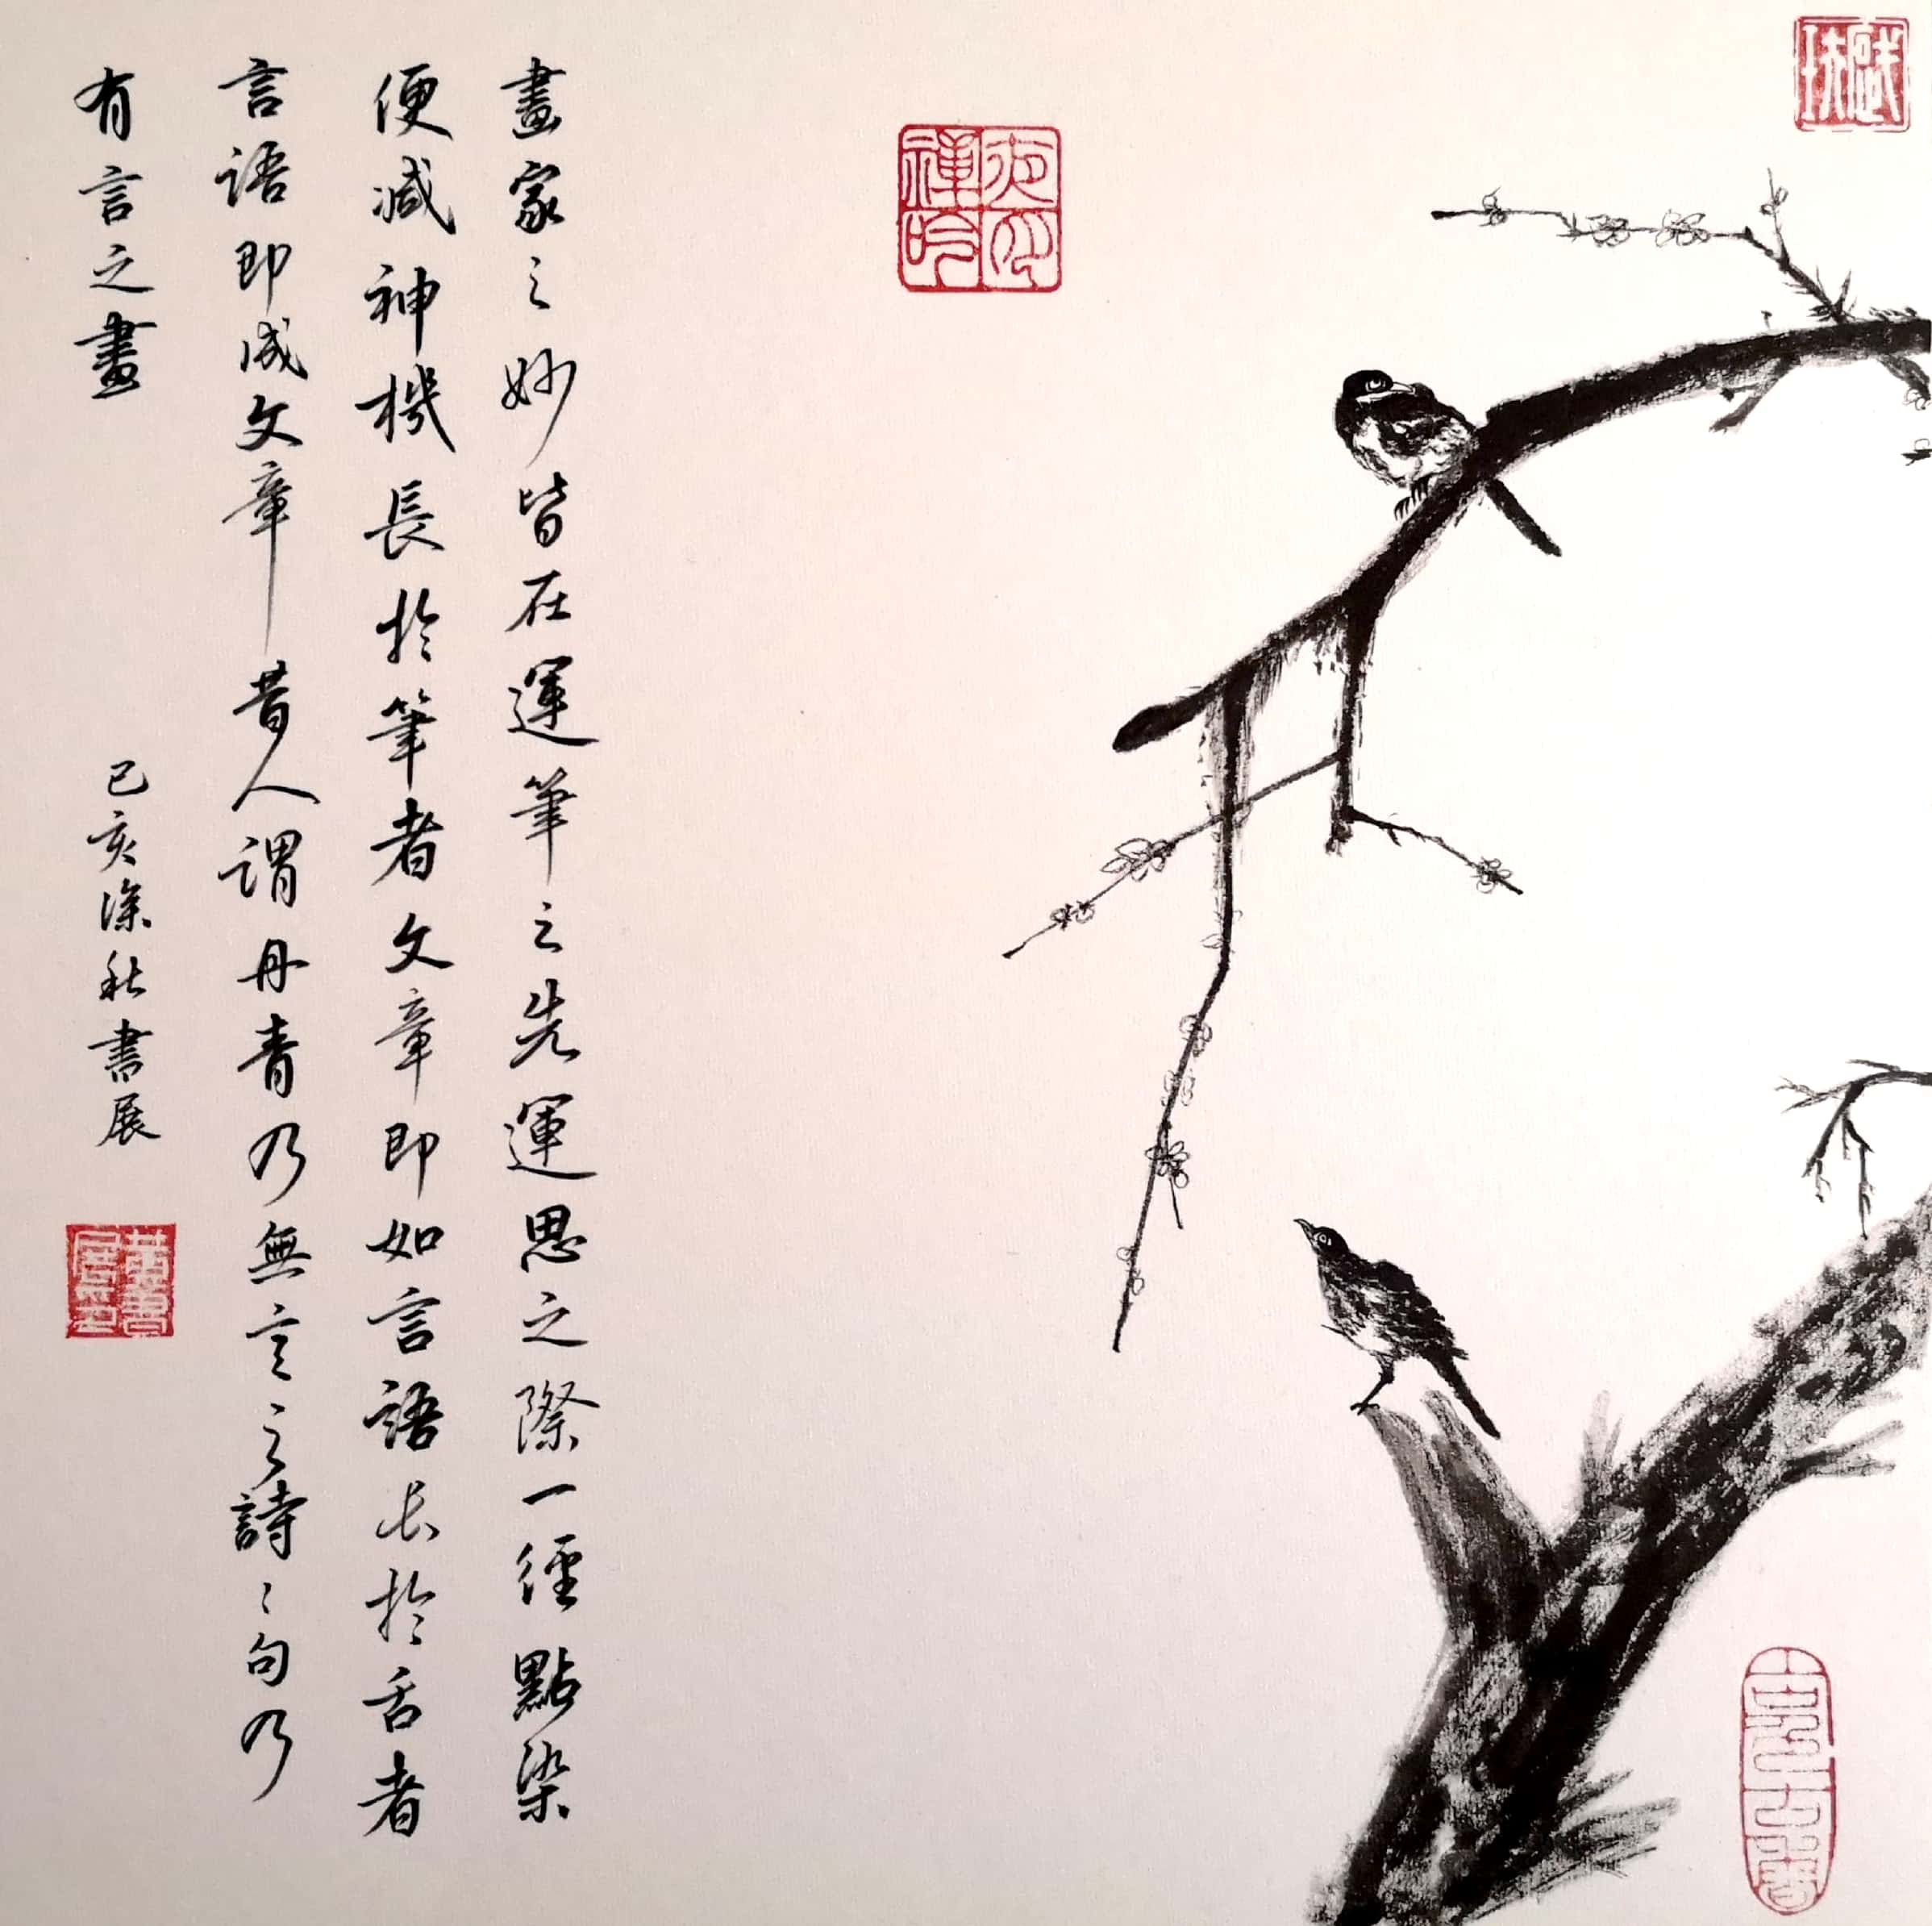 畫家之妙皆在運筆之先運思之際一經點染
便減神機長於筆者文章即如言語長於舌者
言語即成文章昔人謂丹青乃無言之詩〻句乃
有言之畫
己亥深秋書展